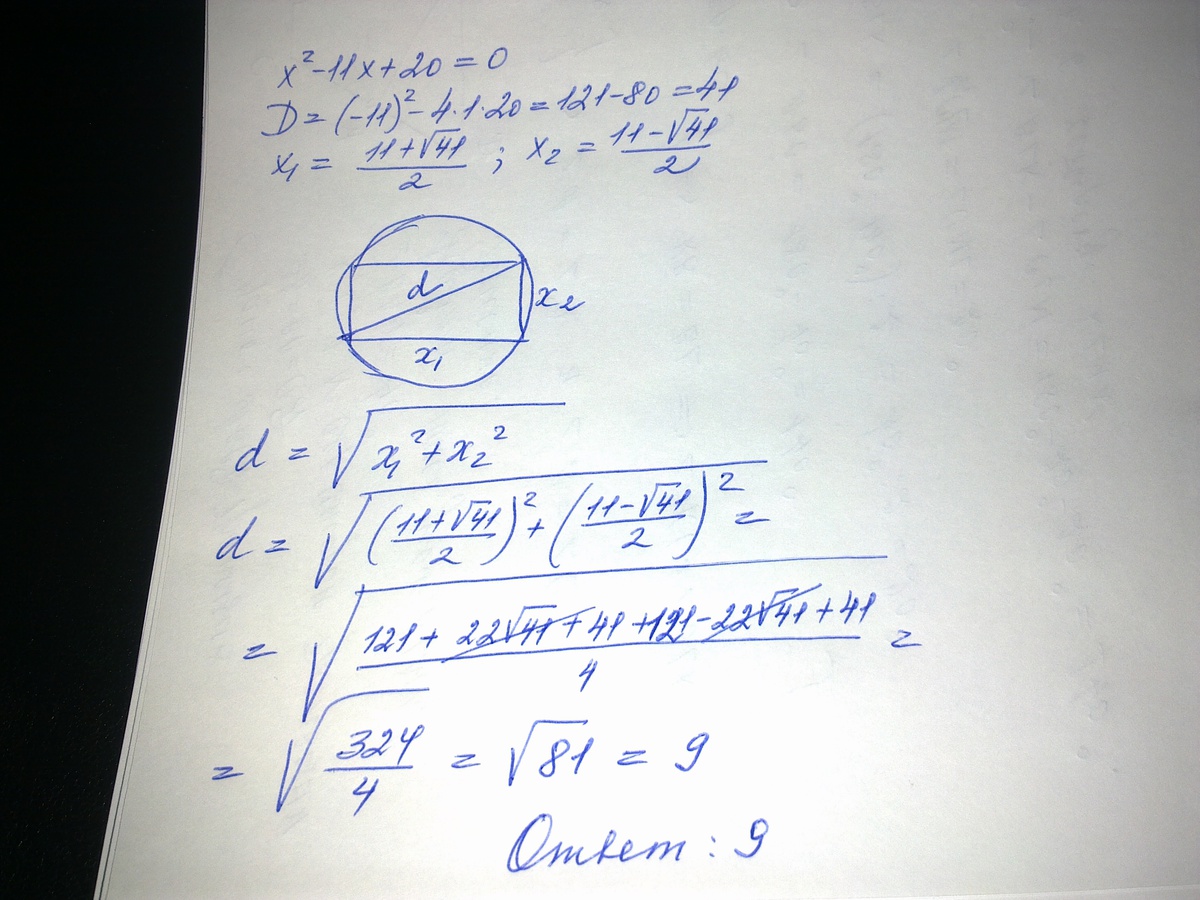 x² - 11x + 20 = 0
D = (-11)² - 4·1·20 = 121 - 80 = 41
x₁ = (11 + √41)/2 ; x₂ = (11 - √41)/2
d
x₂
x₁
d = √(x₁² + x₂²)
d = √(((11 + √41)/2)² + ((11 - √41)/2)²) =
= √((121 + 22√41 + 41 + 121 - 22√41 + 41)/4) =
= √(324/4) = √81 = 9
Ответ: 9